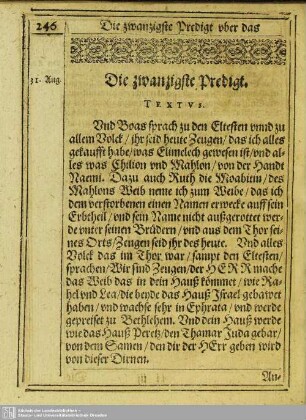 246
Die zwanzigste Predigt vber das
31. Aug.
Die zwanzigste Predigt.
TEXTVS.
Vnd Boas sprach zu den Eltesten vnnd zu
allem Volck / ihr seid heute Zeugen / das ich alles
gekaufft habe / was Elimelech gewesen ist / vnd al-
les was Chilion vnd Mahlon / von der Handt
Naemi. Dazu auch Ruth die Moabitin / des
Mahlons Weib neme ich zum Weibe / das ich
dem verstorbenen einen Namen erwecke auff sein
Erbtheil / vnd sein Name nicht außgerottet wer-
de vnter seinen Brüdern / vnd aus dem Thor sei-
nes Orts / Zeugen seid ihr des heute. Vnd alles
Volck das im Thor war / sampt den Eltesten /
sprachen / Wir sind Zeugen / der HERR mache
das Weib das in dein Hauß kommet / wie Ra-
hel vnd Lea / die beyde das Hauß Jsrael gebawet
haben / vnd wachse sehr in Ephrata / vnd werde
gepreiset zu Bethlehem. Vnd dein Hauß werde
wie das Hauß Peretz / den Thamar Juda gebar /
von dem Samen / den dir der HErr geben wird
von dieser Dirnen.